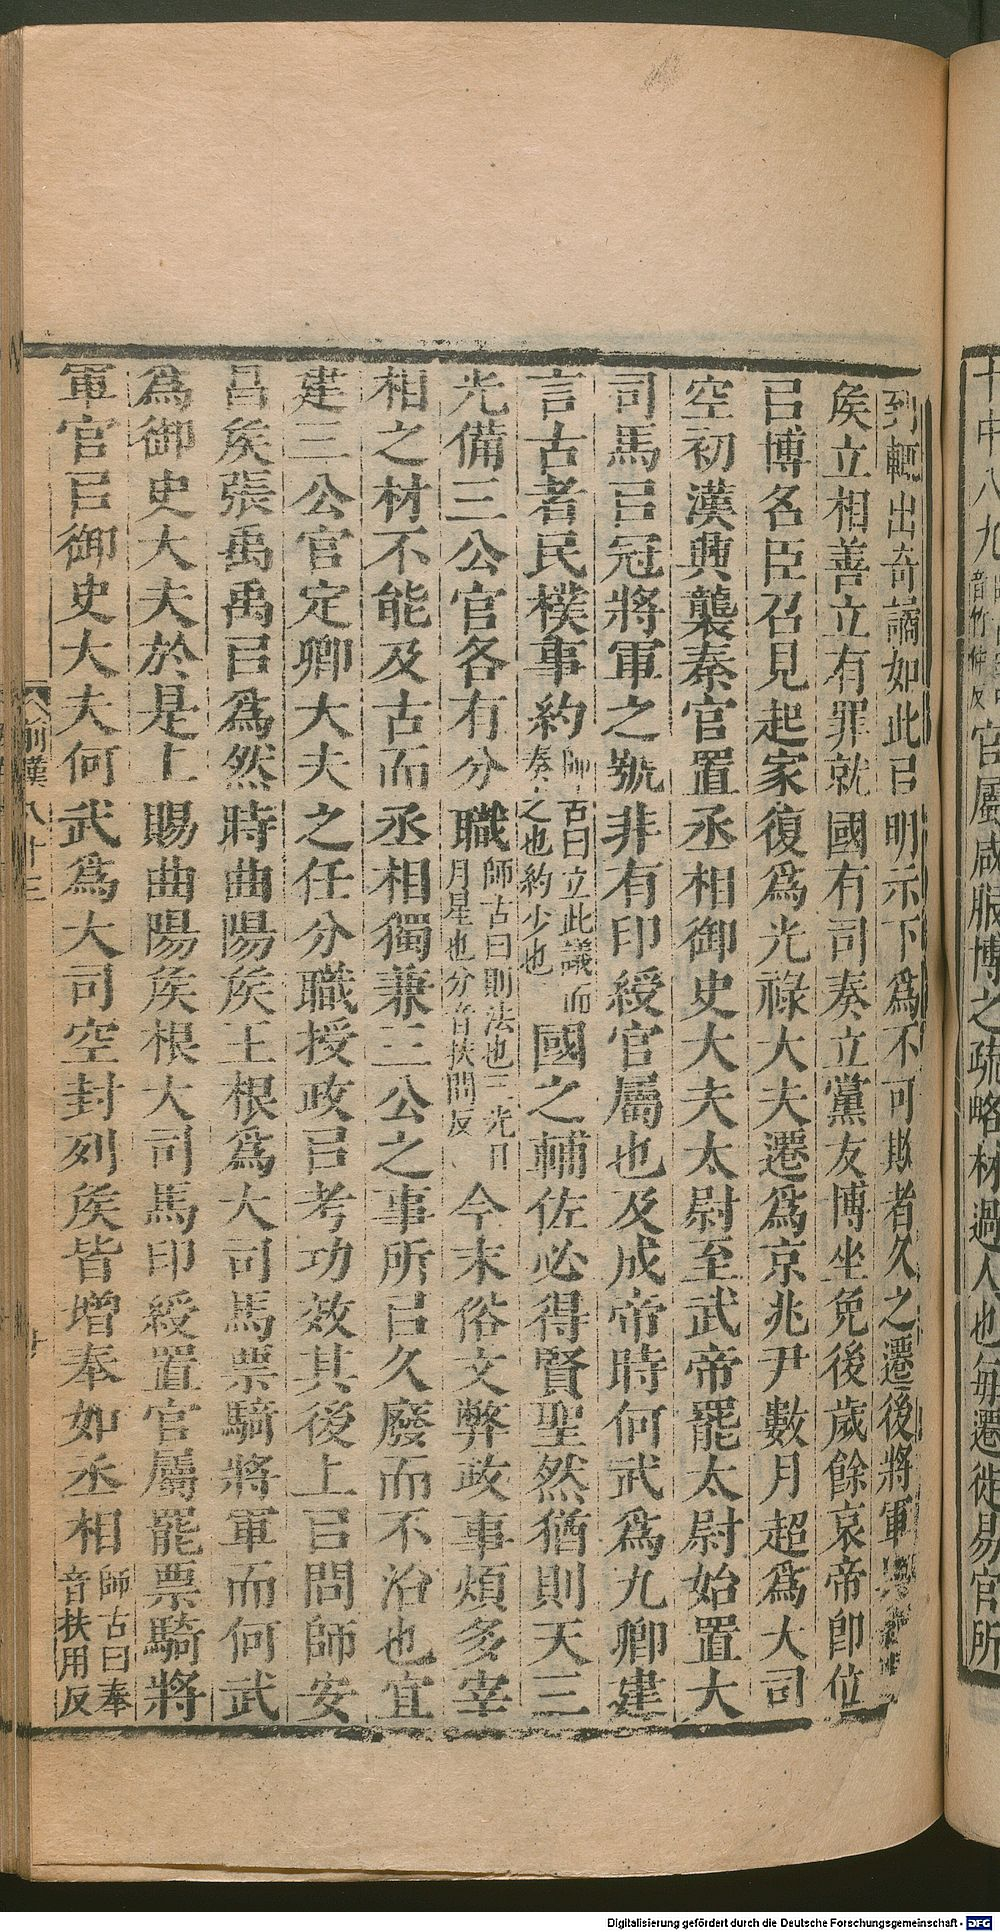 十中八九
官屬咸服博之疏略材過人也每遷徙易官所
到輒出奇譎如此㠯明示下爲不可欺者久之遷後將軍與
矦立相善立有罪就國有司奏立黨友博坐免後歲餘哀帝卽位
㠯博名臣召見起家復爲光祿大夫遷爲京兆尹數月超爲大司
空初漢興襲秦官置丞相御史大夫太尉至武帝罷太尉始置大
司馬㠯冠將軍之號非有印綬官屬也及成帝時何武爲九卿建
言古者民樸事約師古曰立此議而奏之也約少也國之輔佐必得賢聖然猶則天三
光備三公官各有分職師古曰則法也三光日月星也分音扶問反今末俗文弊政事煩多宰
相之材不能及古而丞相獨兼三公之事所㠯久廢而不治也宜
建三公官定卿大夫之任分職授政㠯考功效其後上㠯問師安
昌矦張禹禹㠯爲然時曲陽矦王根爲大司馬票騎將軍而何武
爲御史大夫於是上賜曲陽矦根大司馬印綬置官屬罷票騎將
軍官㠯御史大夫何武爲大司空封列矦皆增奉如丞相師古曰奉音扶用反
前漢八十三
Digitalisierung gefördert durch die Deutsche Forschungsgemeinschaft - DFG